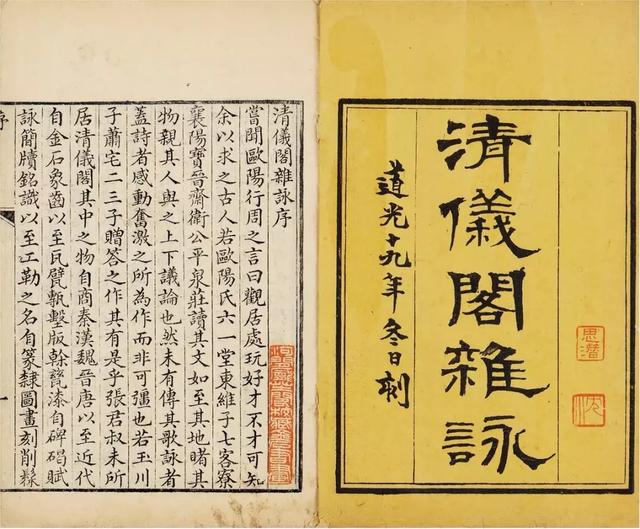 清儀閣雜詠
道光十九年冬日刻
思潛
沈
清儀閣雜詠序
嘗聞歐陽行周之言曰觀居處玩好才不才可知
余以求之古人若歐陽氏六一堂東維子七客寮
襄陽寶晉齋衛公平泉莊讀其文如至其地睹其
物親其人與之上下議論也然未有傳其歌詠者
蓋詩者感動奮激之所為作而非可彊也若玉川
子蕭宅二三子贈答之作其有是乎張君叔未所
居清儀閣其中之物自商秦漢魏晉唐以至近代
自金石象齒以至瓦甓甎墼版榦甆漆自碑碣賦
詠簡牘銘識以至工勒之名自篆隸圖畫刻削髹
序